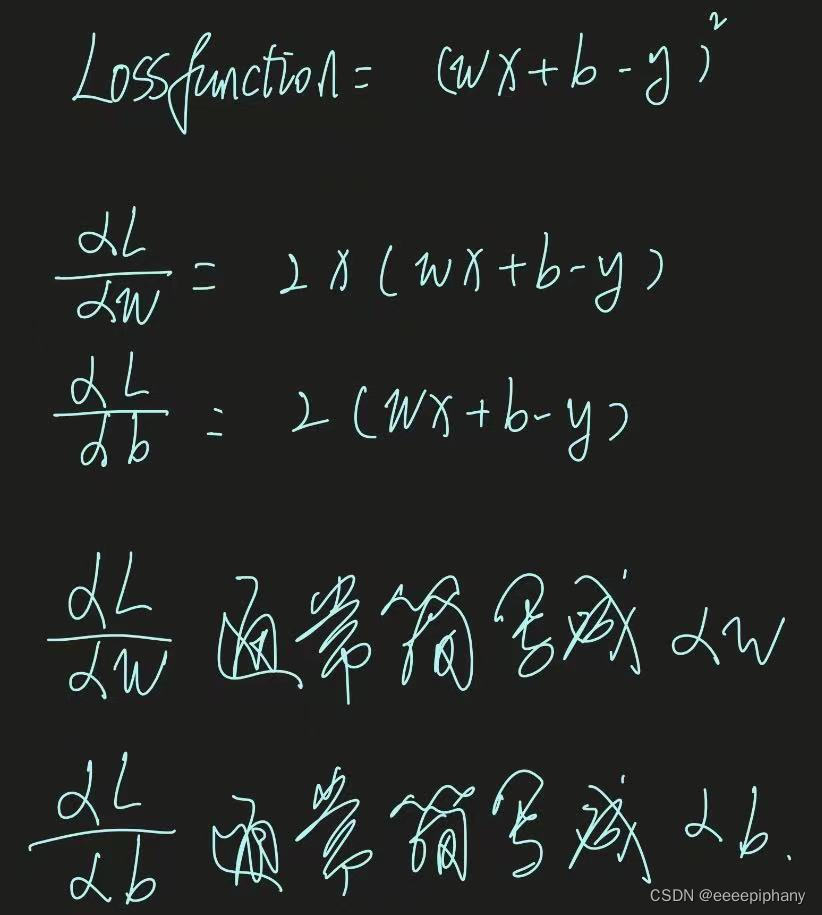 Lossfunction = (wx+b-y)²
dL/dw = 2x(wx+b-y)
dL/db = 2(wx+b-y)
dL/dw 通常简写成 dw
dL/db 通常简写成 db.
CSDN @eeeepiphany